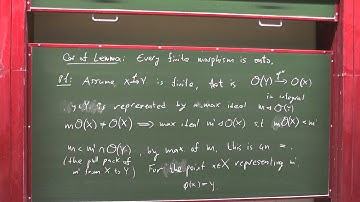 Cor of Lemma: Every finite morphism is onto.
Pf: Assume X →f Y is finite, that is O(Y) →f* O(X)
is integral
y∈Y is represented by a max ideal m ⊲ O(Y)
mO(X) ≠ O(X) ⟹ max ideal m' ⊲ O(X) s.t. mO(X) < m'
m < m' ∩ O(Y), by max. of m, this is an =.
(the pull back of m' from X to Y) For the point x∈X representing m'
f(x) = y